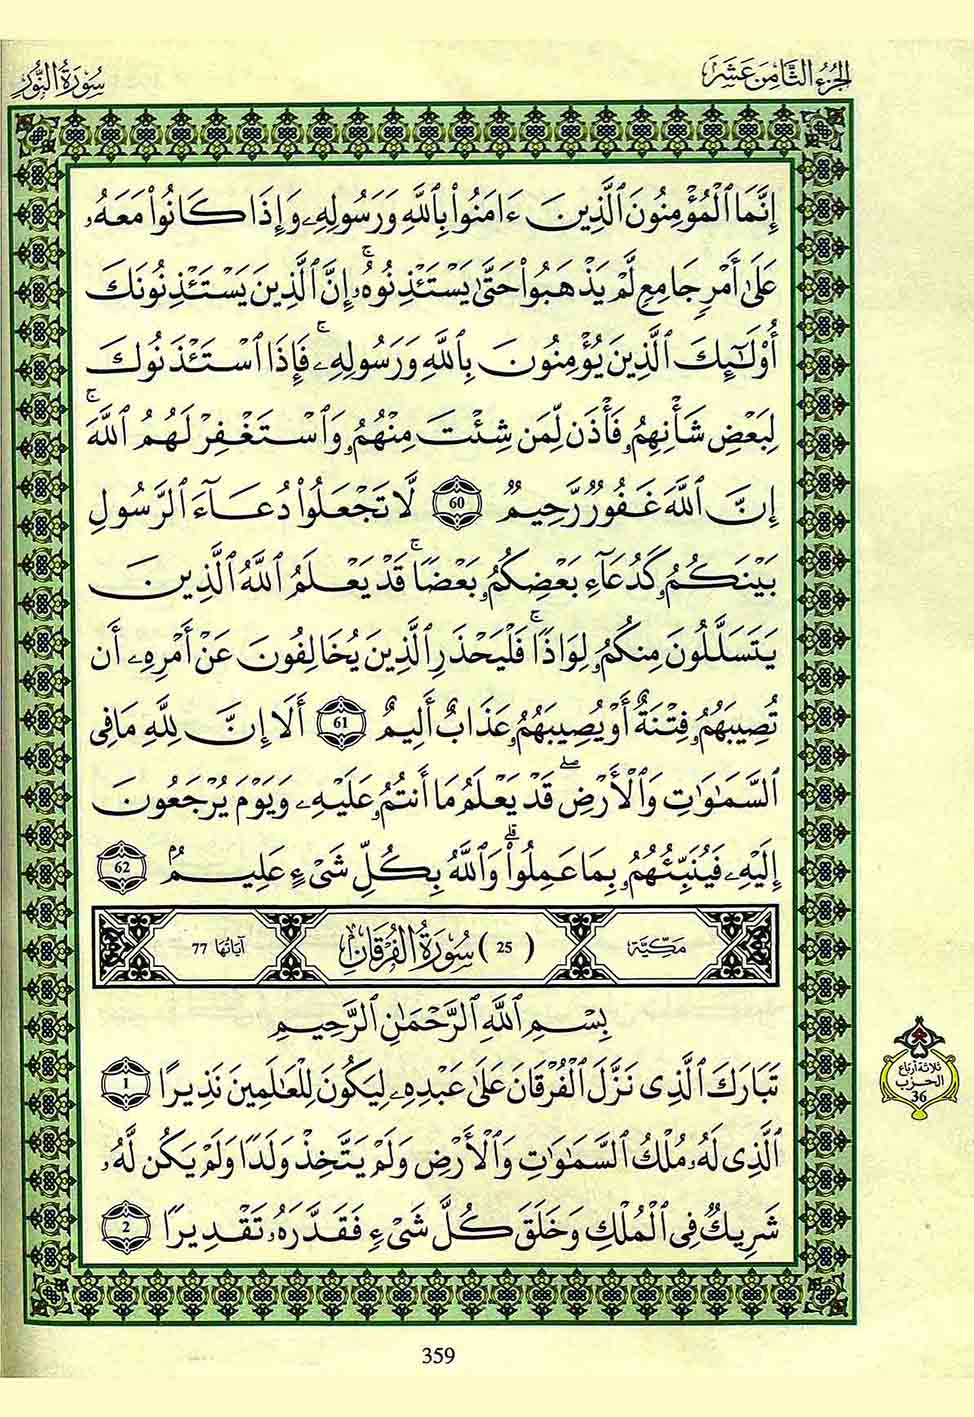 الجزء الثامن عشر
سورة النور
إِنَّمَا ٱلْمُؤْمِنُونَ ٱلَّذِينَ ءَامَنُوا۟ بِٱللَّهِ وَرَسُولِهِۦ وَإِذَا كَانُوا۟ مَعَهُۥ
عَلَىٰٓ أَمْرٍ جَامِعٍ لَّمْ يَذْهَبُوا۟ حَتَّىٰ يَسْتَـْٔذِنُوهُۚ إِنَّ ٱلَّذِينَ يَسْتَـْٔذِنُونَكَ
أُو۟لَٰٓئِكَ ٱلَّذِينَ يُؤْمِنُونَ بِٱللَّهِ وَرَسُولِهِۦۚ فَإِذَا ٱسْتَـْٔذَنُوكَ
لِبَعْضِ شَأْنِهِمُۥ فَأْذَن لِّمَن شِئْتَ مِنْهُمُۥ وَٱسْتَغْفِرْ لَهُمُ ٱللَّهَۚ
إِنَّ ٱللَّهَ غَفُورٌ رَّحِيمٌ 60 لَّا تَجْعَلُوا۟ دُعَآءَ ٱلرَّسُولِ
بَيْنَكُمُۥ كَدُعَآءِ بَعْضِكُمُۥ بَعْضًاۚ قَدْ يَعْلَمُ ٱللَّهُ ٱلَّذِينَ
يَتَسَلَّلُونَ مِنكُمُۥ لِوَاذًاۚ فَلْيَحْذَرِ ٱلَّذِينَ يُخَالِفُونَ عَنْ أَمْرِهِۦ أَن
تُصِيبَهُمُۥ فِتْنَةٌ أَوْ يُصِيبَهُمُۥ عَذَابٌ أَلِيمٌ 61 أَلَا إِنَّ لِلَّهِ مَا فِى
ٱلسَّمَٰوَٰتِ وَٱلْأَرْضِۖ قَدْ يَعْلَمُ مَا أَنتُمُۥ عَلَيْهِۦ وَيَوْمَ يُرْجَعُونَ
إِلَيْهِۦ فَيُنَبِّئُهُمُۥ بِمَا عَمِلُوا۟ۗ وَٱللَّهُ بِكُلِّ شَىْءٍ عَلِيمٌ 62
مكية (25) سورة الفرقان آياتها 77
بِسْمِ ٱللَّهِ ٱلرَّحْمَٰنِ ٱلرَّحِيمِ
تَبَارَكَ ٱلَّذِى نَزَّلَ ٱلْفُرْقَانَ عَلَىٰ عَبْدِهِۦ لِيَكُونَ لِلْعَٰلَمِينَ نَذِيرًا 1
ٱلَّذِى لَهُۥ مُلْكُ ٱلسَّمَٰوَٰتِ وَٱلْأَرْضِ وَلَمْ يَتَّخِذْ وَلَدًا وَلَمْ يَكُن لَّهُۥ
شَرِيكٌ فِى ٱلْمُلْكِ وَخَلَقَ كُلَّ شَىْءٍ فَقَدَّرَهُۥ تَقْدِيرًا 2
ثلاثة أرباع
الحزب
36
359